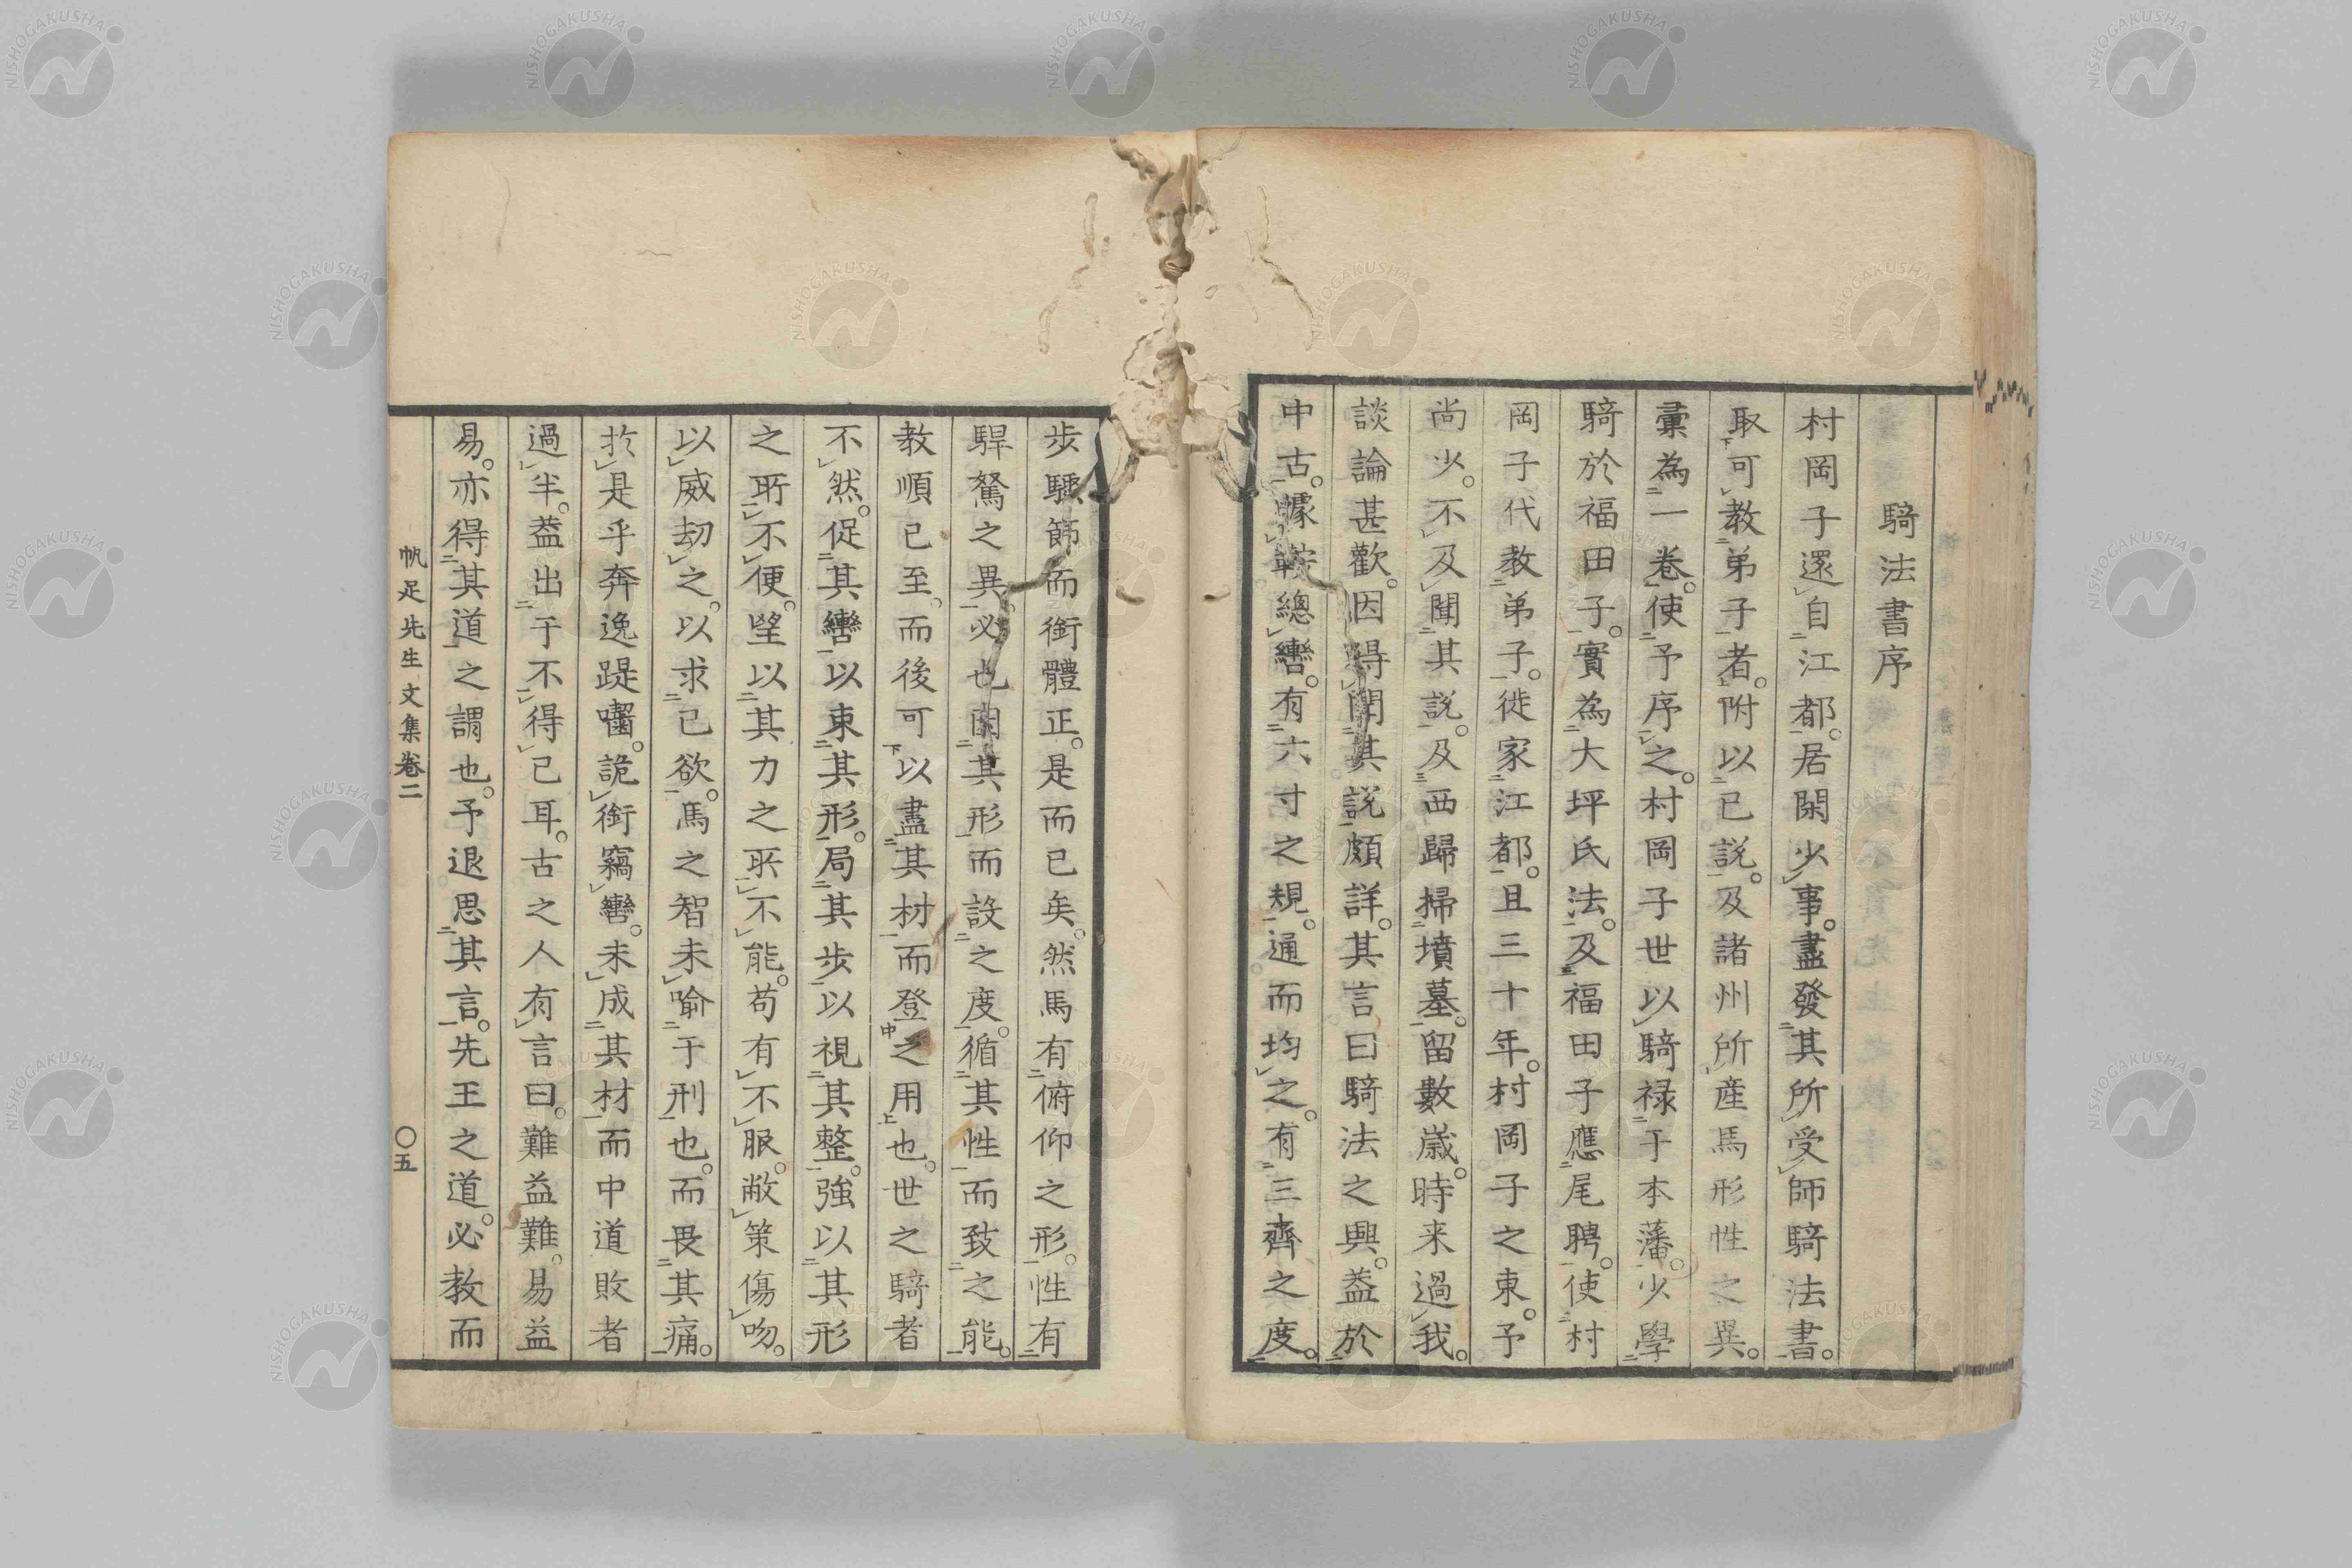 騎法書序
村岡子還自江都。居閑少事。盡發其所受師騎法書。
取可教弟子者。附以已說。及諸州所産馬形性之異。
彙為一卷。使予序之。村岡子世以騎祿于本藩。少學
騎於福田子。實為大坪氏法。及福田子應尾聘。使村
岡子代教弟子。徙家江都。且三十年。村岡子之東。予
尚少。不及聞其説。及西歸掃墳墓。留數歳。時来過我。
談論甚歡。因得聞其説頗詳。其言曰騎法之興。葢於
中古。據鞍總轡。有六寸之規。通而均之。有三齊之度。
步驟節而銜體正。是而已矣。然馬有俯仰之形。性有
駻駑之異。必也因其形而設之度。循其性而致之能。
教順已至。而後可以盡其材而登之用也。世之騎者
不然。促其轡以束其形。局其步以視其整。強以其形
之所不便。望以其力之所不能。苟有不服。敝策傷吻。
以威劫之。以求已欲。馬之智未喻于刑也。而畏其痛。
於是乎奔逸踶嚙。詭銜竊轡。未成其材而中道敗者
過半。葢出于不得已耳。古之人有言曰。難益難。易益
易。亦得其道之謂也。予退思其言。先王之道。必教而
帆足先生文集卷二
〇五
NISHOGAKUSHA